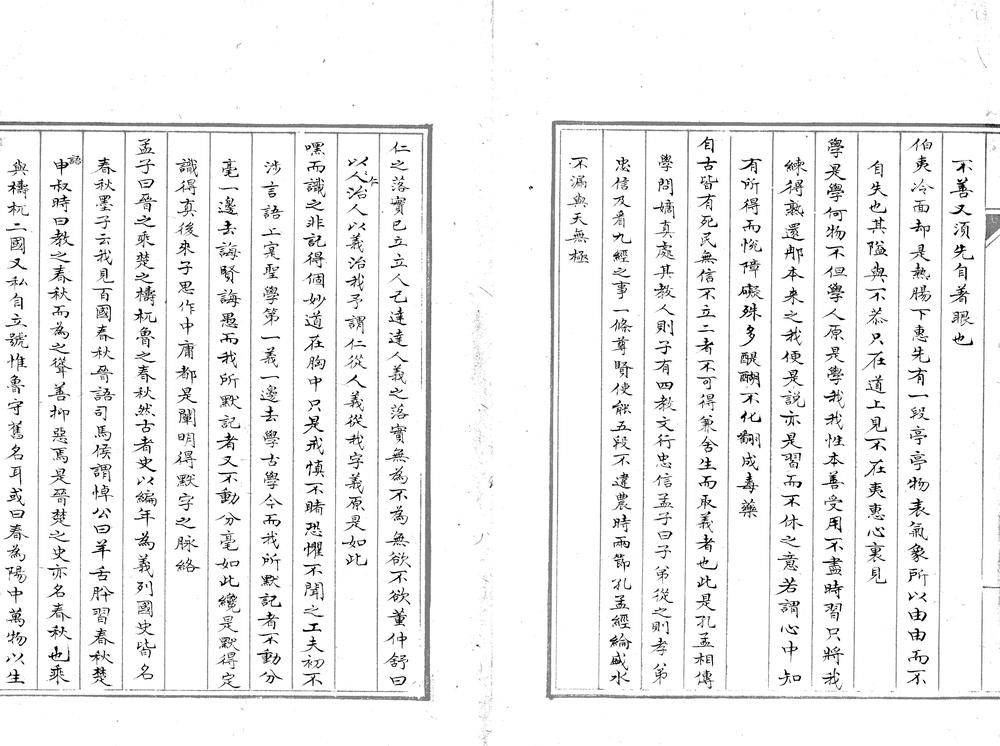 不善又須先自著眼也
伯夷冷面却是熱腸下惠先有一段亭亭物表氣象所以由由而不
自失也其隘與不恭只在道上見不在夷惠心裏見
學是學何物不但學人原是學我我性本善受用不盡時習只將我
練得熟還那本来之我便是説亦是習而不休之意若謂心中知
有所得而悅障礙殊多醍醐不化翻成毒藥
自古皆有死民無信不立二者不可得兼舍生而取義者也此是孔孟相傳
學問嫡真處其教人則子有四教文行忠信孟子曰子弟從之則孝弟
忠信及看九經之事一條尊賢使能五段不違農時兩節孔孟經綸盛水
不漏與天無極
仁之落實已立立人己達達人義之落實無為不為無欲不欲董仲舒曰
以人治人以義治我予謂仁從人義從我字義原是如此
仁
嘿而識之非記得個妙道在胸中只是戒慎不睹恐懼不聞之工夫初不
涉言語上寔聖學第一義一邊去學古學今而我所默記者不動分
毫一邊去誨賢誨愚而我所默記者又不動分毫如此纔是默得定
識得真後來子思作中庸都是闡明得默字之脉絡
孟子曰晉之乘楚之檮杌魯之春秋然古者史以編年為義列國史皆名
春秋墨子云我見百國春秋晉語司馬侯謂悼公曰羊舌肸習春秋楚
語
申叔時曰教之春秋而為之聳善抑惡焉是晉楚之史亦名春秋也乘
與檮杌二國又私自立號惟魯守舊名耳或曰春為陽中萬物以生